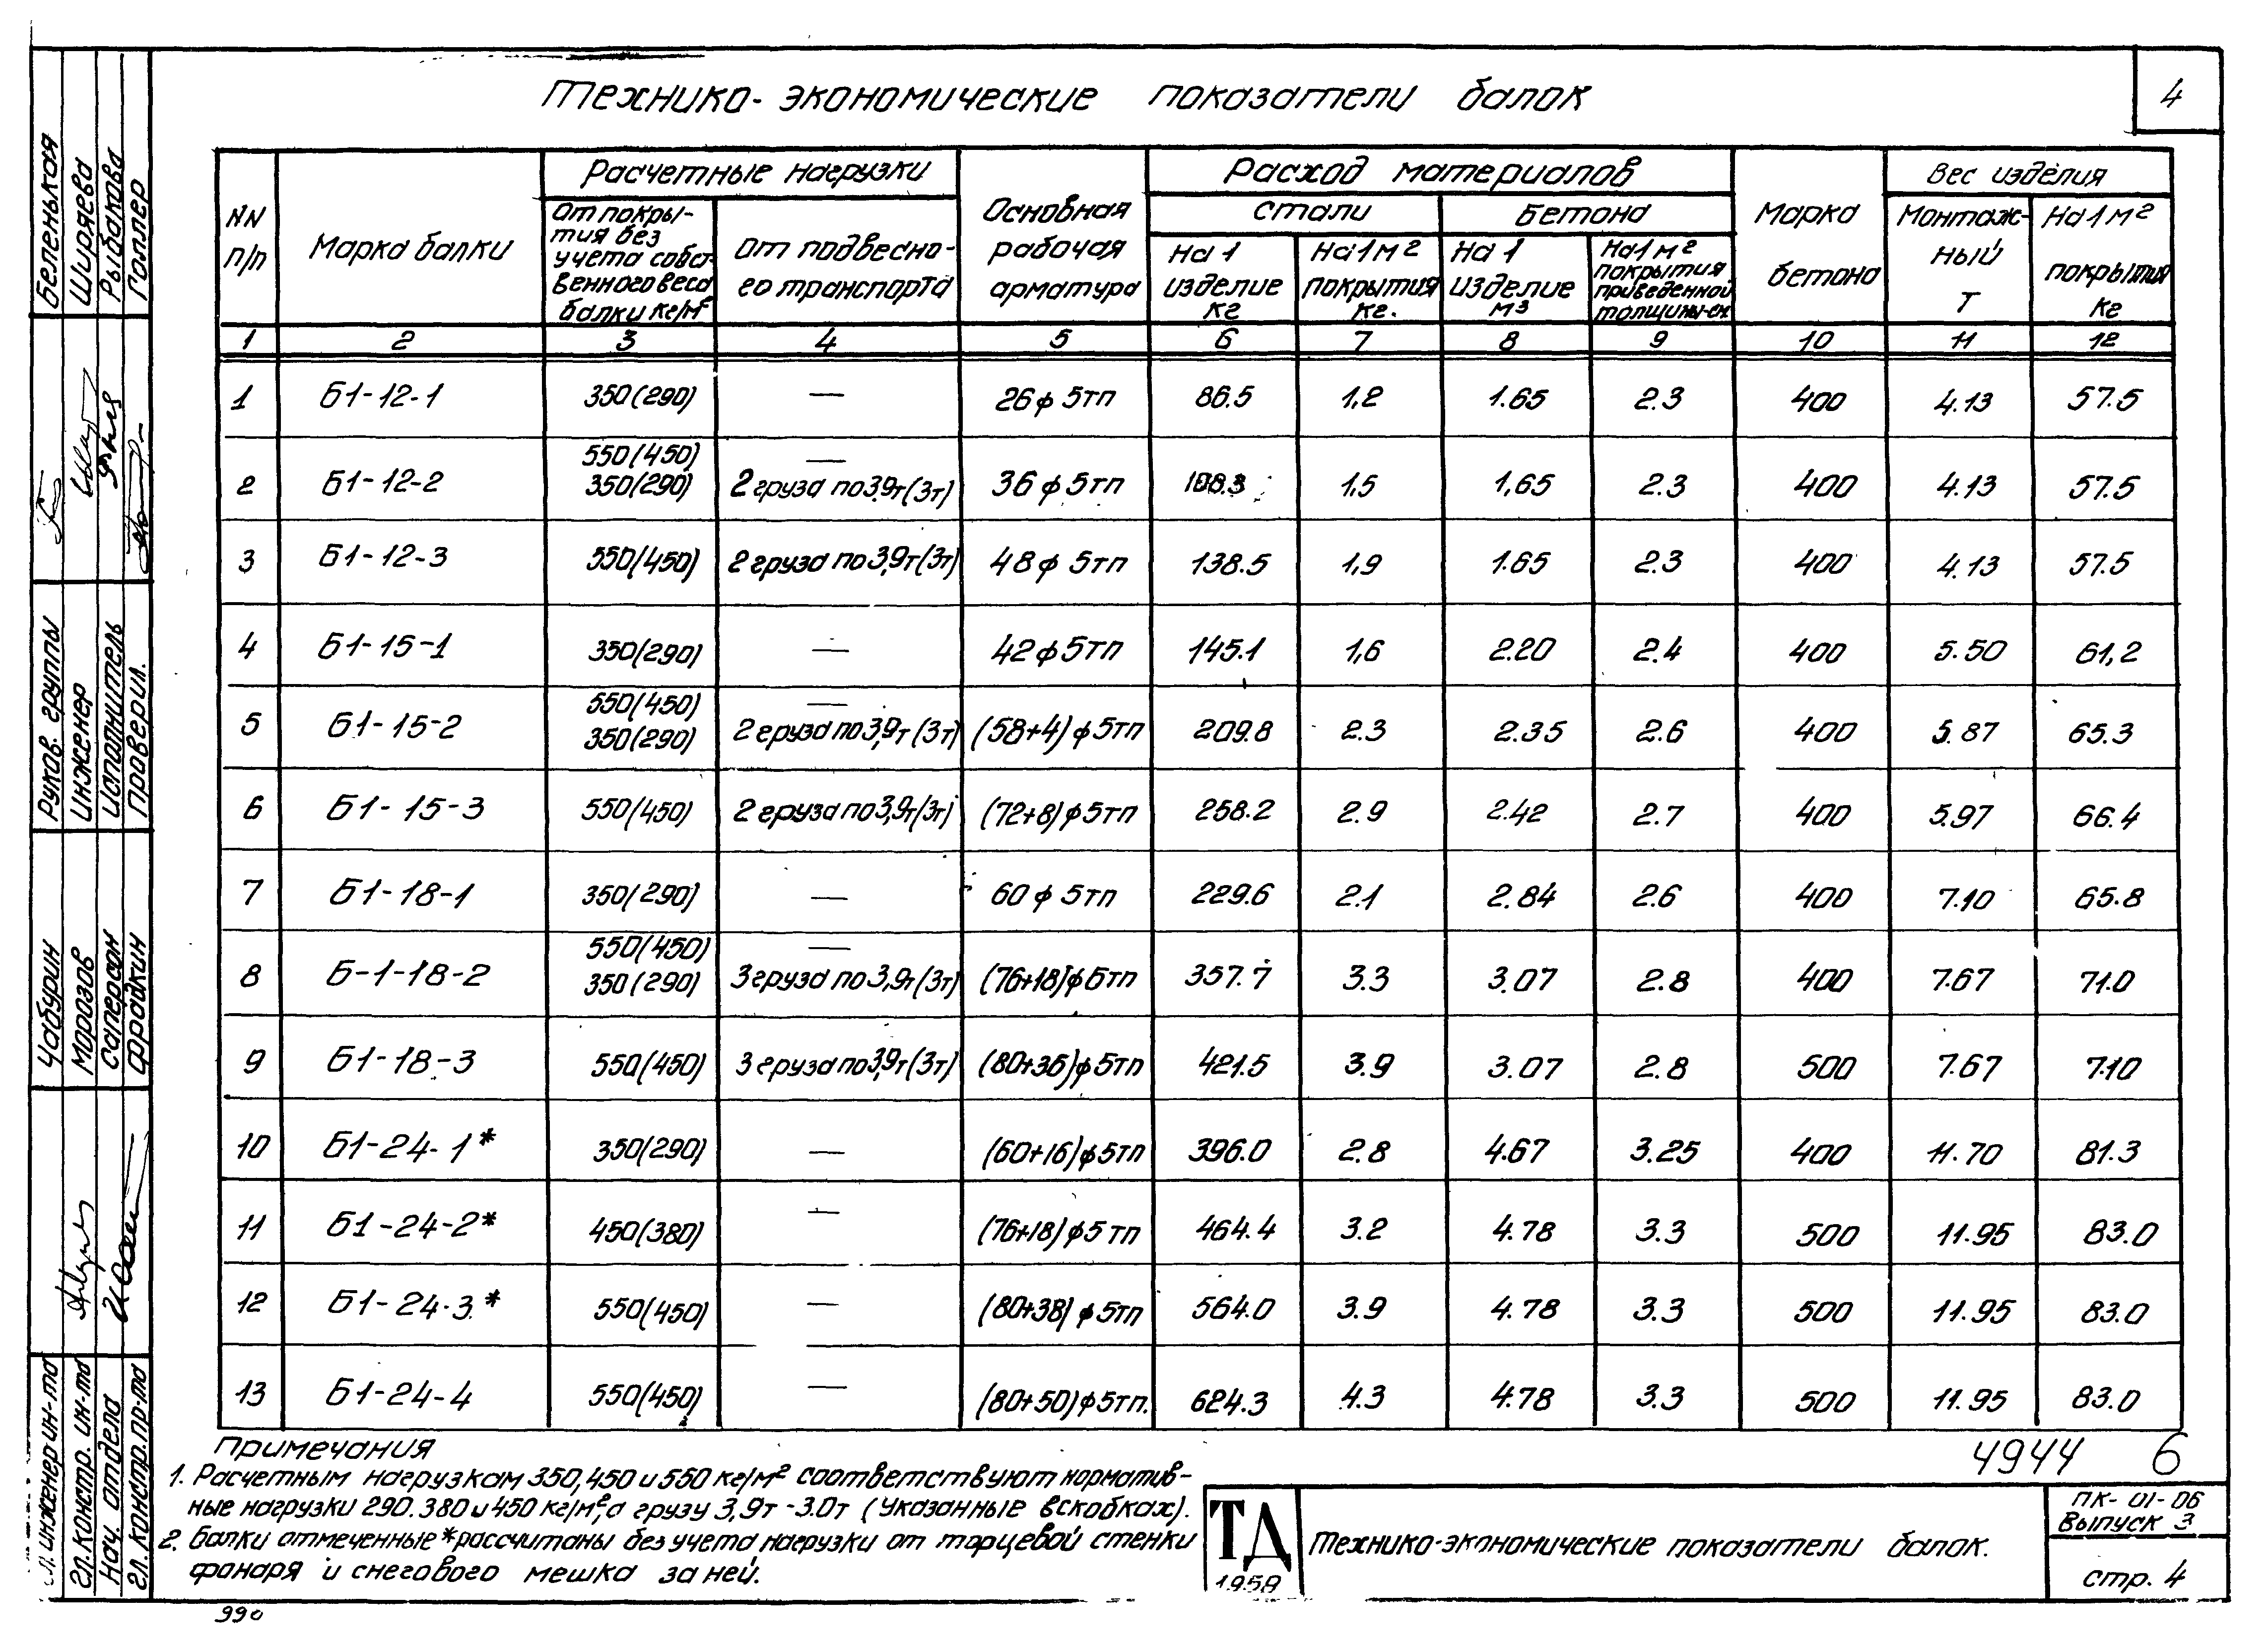 4
Технико-экономические показатели балок
NN п/п | Марка балки | Расчетные нагрузки | Основная рабочая арматура | Расход материалов | Марка бетона | Вес изделия
От покрытия без учета собственного веса балки кг/м² | От подвесного транспорта | Стали | Бетона | Монтажный т | На 1м² покрытия кг
На 1 изделие кг | На 1м² покрытия кг. | На 1 изделие м³ | На 1м² покрытия приведенной толщины-см
1 | 2 | 3 | 4 | 5 | 6 | 7 | 8 | 9 | 10 | 11 | 12
1 | Б1-12-1 | 350(290) | — | 26ф5тп | 86.5 | 1,2 | 1.65 | 2.3 | 400 | 4.13 | 57.5
2 | Б1-12-2 | 550(450) 350(290) | — 2 груза по 3,9т(3т) | 36ф5тп | 108.3 | 1,5 | 1,65 | 2.3 | 400 | 4.13 | 57.5
3 | Б1-12-3 | 550(450) | 2 груза по 3,9т(3т) | 48ф5тп | 138.5 | 1,9 | 1.65 | 2.3 | 400 | 4.13 | 57.5
4 | Б1-15-1 | 350(290) | — | 42ф5тп | 145.1 | 1,6 | 2.20 | 2.4 | 400 | 5.50 | 61,2
5 | Б1-15-2 | 550(450) 350(290) | — 2 груза по 3,9т(3т) | (58+4)ф5тп | 209.8 | 2.3 | 2.35 | 2.6 | 400 | 5.87 | 65.3
6 | Б1-15-3 | 550(450) | 2 груза по 3,9т(3т) | (72+8)ф5тп | 258.2 | 2.9 | 2.42 | 2.7 | 400 | 5.97 | 66.4
7 | Б1-18-1 | 350(290) | — | 60ф5тп | 229.6 | 2.1 | 2.84 | 2.6 | 400 | 7.10 | 65.8
8 | Б-1-18-2 | 550(450) 350(290) | — 3 груза по 3,9т(3т) | (76+18)ф5тп | 357.7 | 3.3 | 3.07 | 2.8 | 400 | 7.67 | 71.0
9 | Б1-18-3 | 550(450) | 3 груза по 3,9т(3т) | (80+36)ф5тп | 421.5 | 3.9 | 3.07 | 2.8 | 500 | 7.67 | 7.10
10 | Б1-24-1* | 350(290) | — | (60+16)ф5тп | 396.0 | 2.8 | 4.67 | 3.25 | 400 | 11.70 | 81.3
11 | Б1-24-2* | 450(380) | — | (76+18)ф5тп | 464.4 | 3.2 | 4.78 | 3.3 | 500 | 11.95 | 83.0
12 | Б1-24.3* | 550(450) | — | (80+38)ф5тп | 564.0 | 3.9 | 4.78 | 3.3 | 500 | 11.95 | 83.0
13 | Б1-24-4 | 550(450) | — | (80+50)ф5тп. | 624.3 | 4.3 | 4.78 | 3.3 | 500 | 11.95 | 83.0
Примечания
1. Расчетным нагрузкам 350,450 и 550 кг/м² соответствуют норматив-
ные нагрузки 290.380 и 450 кг/м², а грузу 3,9т -3.0т (указанные в скобках).
2. Балки отмеченные * рассчитаны без учета нагрузки от торцевой стенки
фонаря и снегового мешка за ней.
4944 6
ТД
1958
Технико-экономические показатели балок.
ПК-01-06
Выпуск 3
стр. 4
990
Беленькая
Ширяева
Рыбакова
Голлер
Руков. группы
Инженер
Исполнитель
Проверил.
Чабурин
Морозов
Саперсон
Фрадкин
Гл. инженер ин-та
Гл. констр. ин-та
Нач. отдела
Гл. констр. пр-та